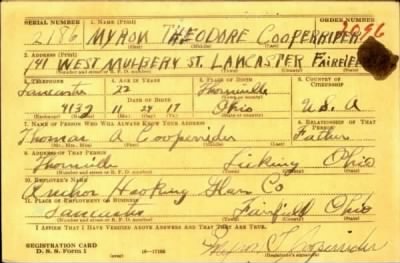 SERIAL NUMBER 1. NAME (Print) ORDER NUMBER
2186 MYRON THEODORE COOPERRIDER 2096
(First) (Middle) (Last)
2. ADDRESS (Print)
141 WEST MULBERY ST. LANCASTER FAIRFIELD
(Number and street or R. F. D. number) (Town) (County) (State)
3. TELEPHONE 4. AGE IN YEARS 5. PLACE OF BIRTH 6. COUNTRY OF CITIZENSHIP
Lancaster 22 Thornville
DATE OF BIRTH
4137 11 24 17 Ohio U.S.A
(Exchange) (Number) (Mo.) (Day) (Yr.) (State or country)
7. NAME OF PERSON WHO WILL ALWAYS KNOW YOUR ADDRESS 8. RELATIONSHIP OF THAT PERSON
Thomas A Cooperrider Father
(Mr., Mrs., Miss) (First) (Middle) (Last)
9. ADDRESS OF THAT PERSON
Thornville Licking Ohio
(Number and street or R. F. D. number) (Town) (County) (State)
10. EMPLOYER'S NAME
Anchor Hocking Glass Co
11. PLACE OF EMPLOYMENT OR BUSINESS
Lancaster Fairfield Ohio
(Number and street or R. F. D. number) (Town) (County) (State)
I AFFIRM THAT I HAVE VERIFIED ABOVE ANSWERS AND THAT THEY ARE TRUE.
REGISTRATION CARD
D. S. S. Form 1 16-17105 Myron T Cooperrider
(Registrant's signature)